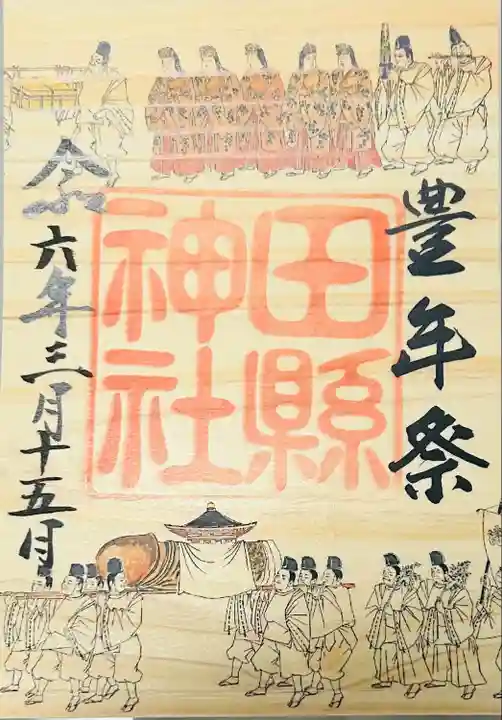 豊年祭
田縣
神社
令和六年三月十五日